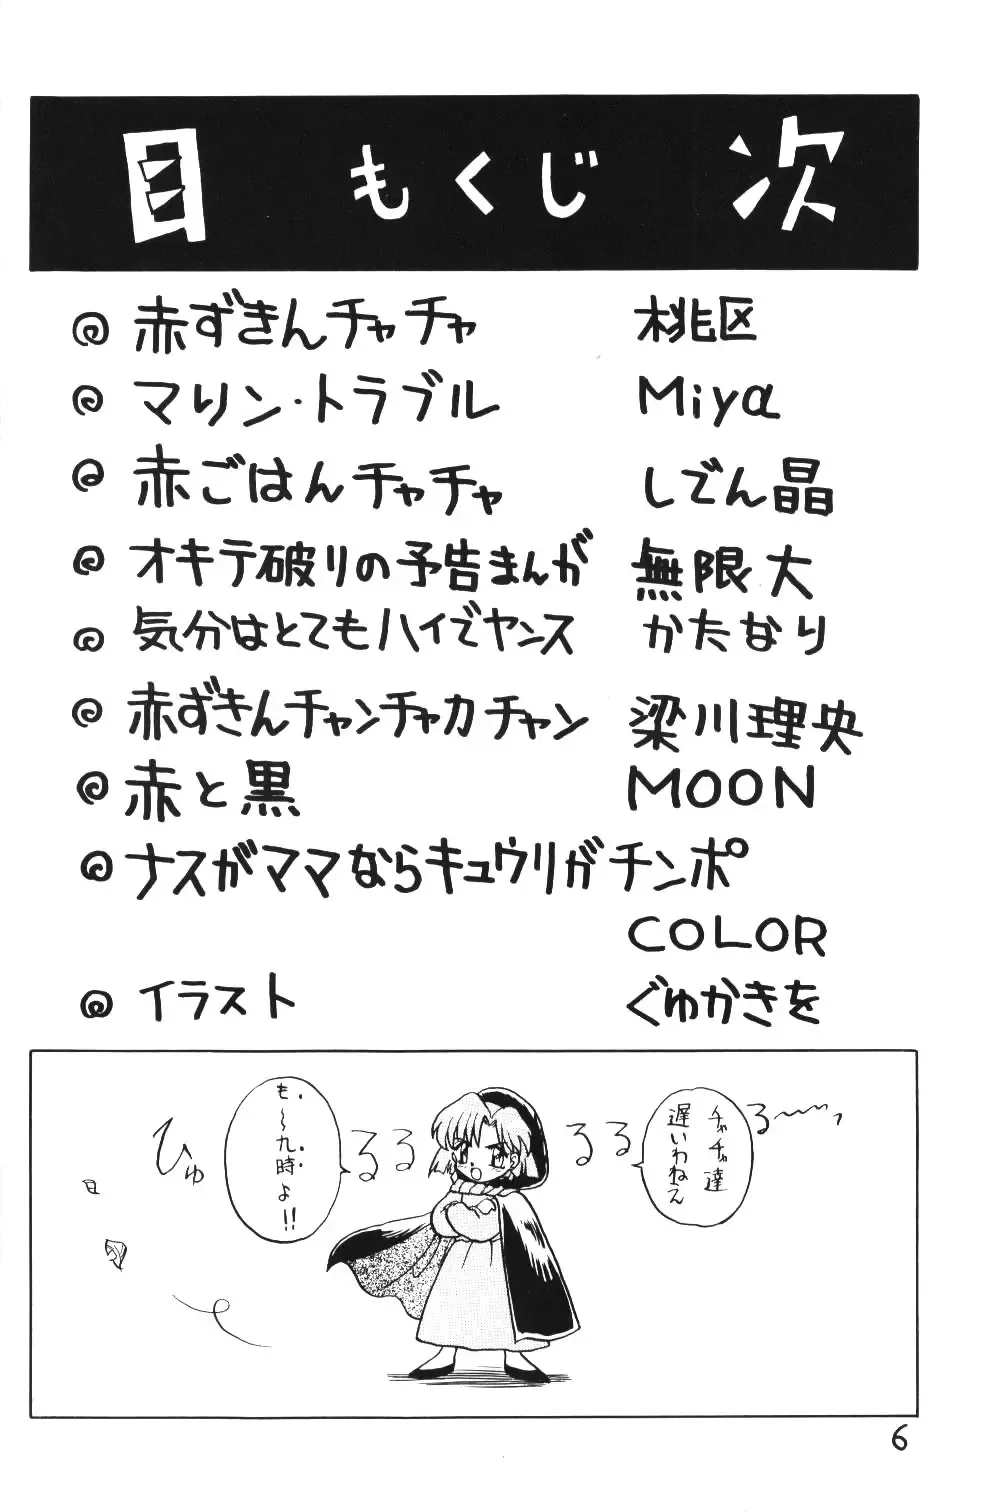 目 もくじ 次
赤ずきんチャチャ 桃区
マリン・トラブル Miya
赤ごはんチャチャ しでん晶
オキテ破りの予告まんが 無限大
気分はとてもハイでヤンス かたなり
赤ずきんチャンチャカチャン 梁川理央
赤と黒 MOON
ナスがママならキュウリがチンポ
COLOR
イラスト ぐゅかきを
チャチャ達
遅いわねえ
も〜九時よ!!
ひゅ
るる
るる
る〜〜っ
6